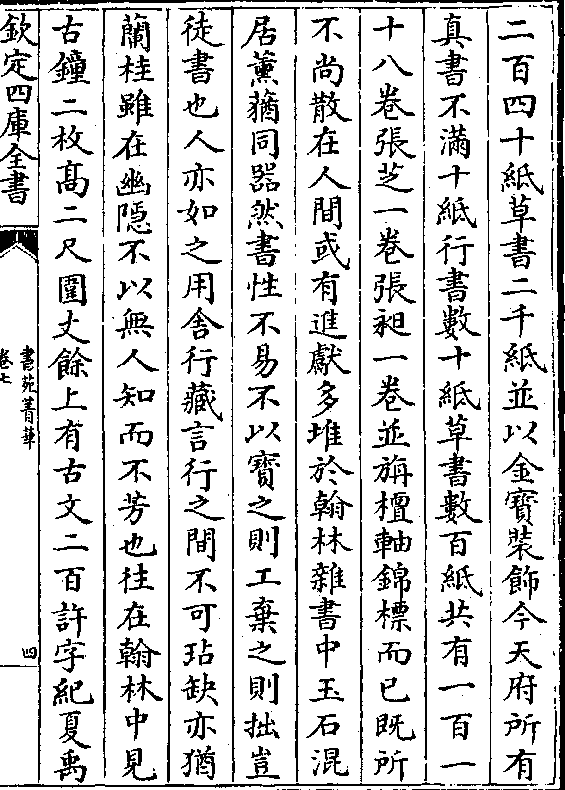 二百四十紙草書二千紙並以金寶裝飾今天府所有
真書不滿十紙行書數十紙草書數百紙共有一百一
十八卷張芝一卷張昶一卷並旃檀軸錦標而已既所
不尚散在人間或有進獻多堆於翰林雜書中玉石混
居薰蕕同器然書性不易不以寶之則工棄之則拙豈
徒書也人亦如之用舍行藏言行之間不可玷缺亦猶
蘭桂雖在幽隱不以無人知而不芳也往在翰林中見
古鐘二枚髙二尺圍丈餘上有古文二百許字紀夏禹
欽定四庫全書
書苑菁華
卷七
四